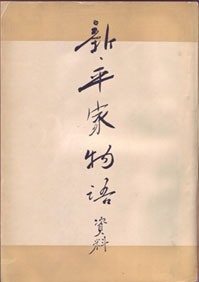 新・平家物語
資料